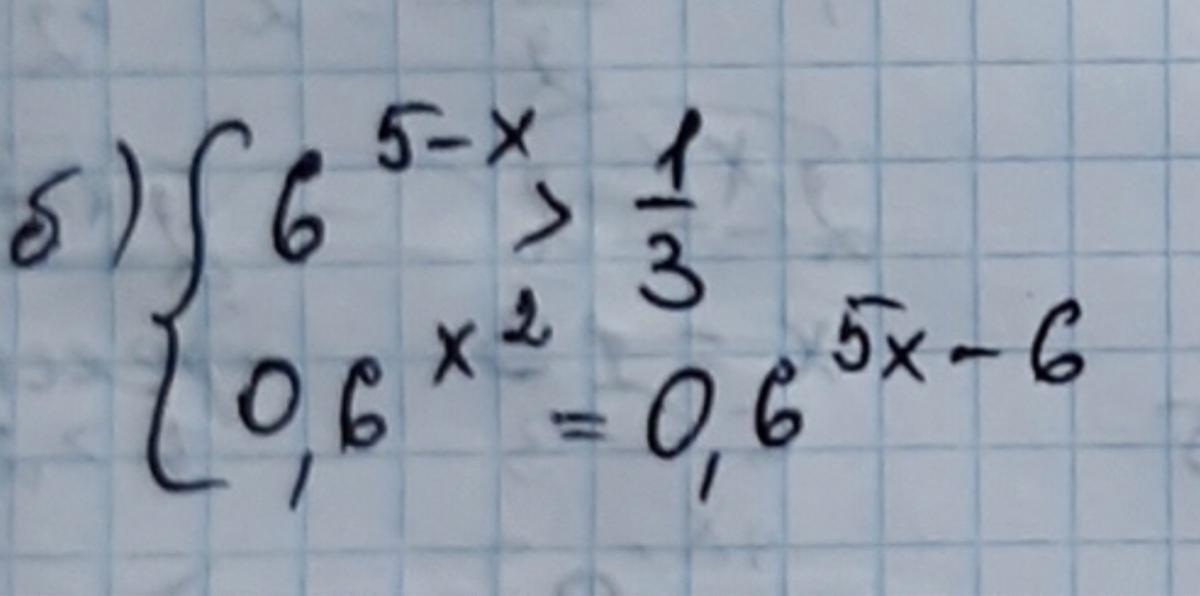 б) { 6^{5-x} > \frac{1}{3}
0,6^{x^2} = 0,6^{5x-6}